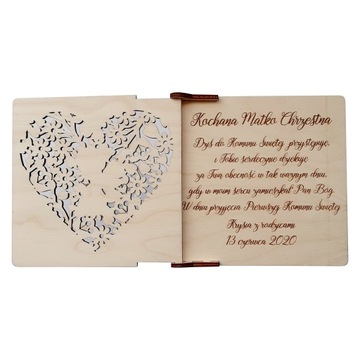 Kochana Matko Chrzestna
Dziś do Komunii Świętej przystępuję,
i Tobie serdecznie dziękuję
za Twą obecność w tak ważnym dniu,
gdy w moim sercu zamieszkał Pan Bóg.
W dniu przyjęcia Pierwszej Komunii Świętej
Krysia z rodzicami
13 czerwca 2020